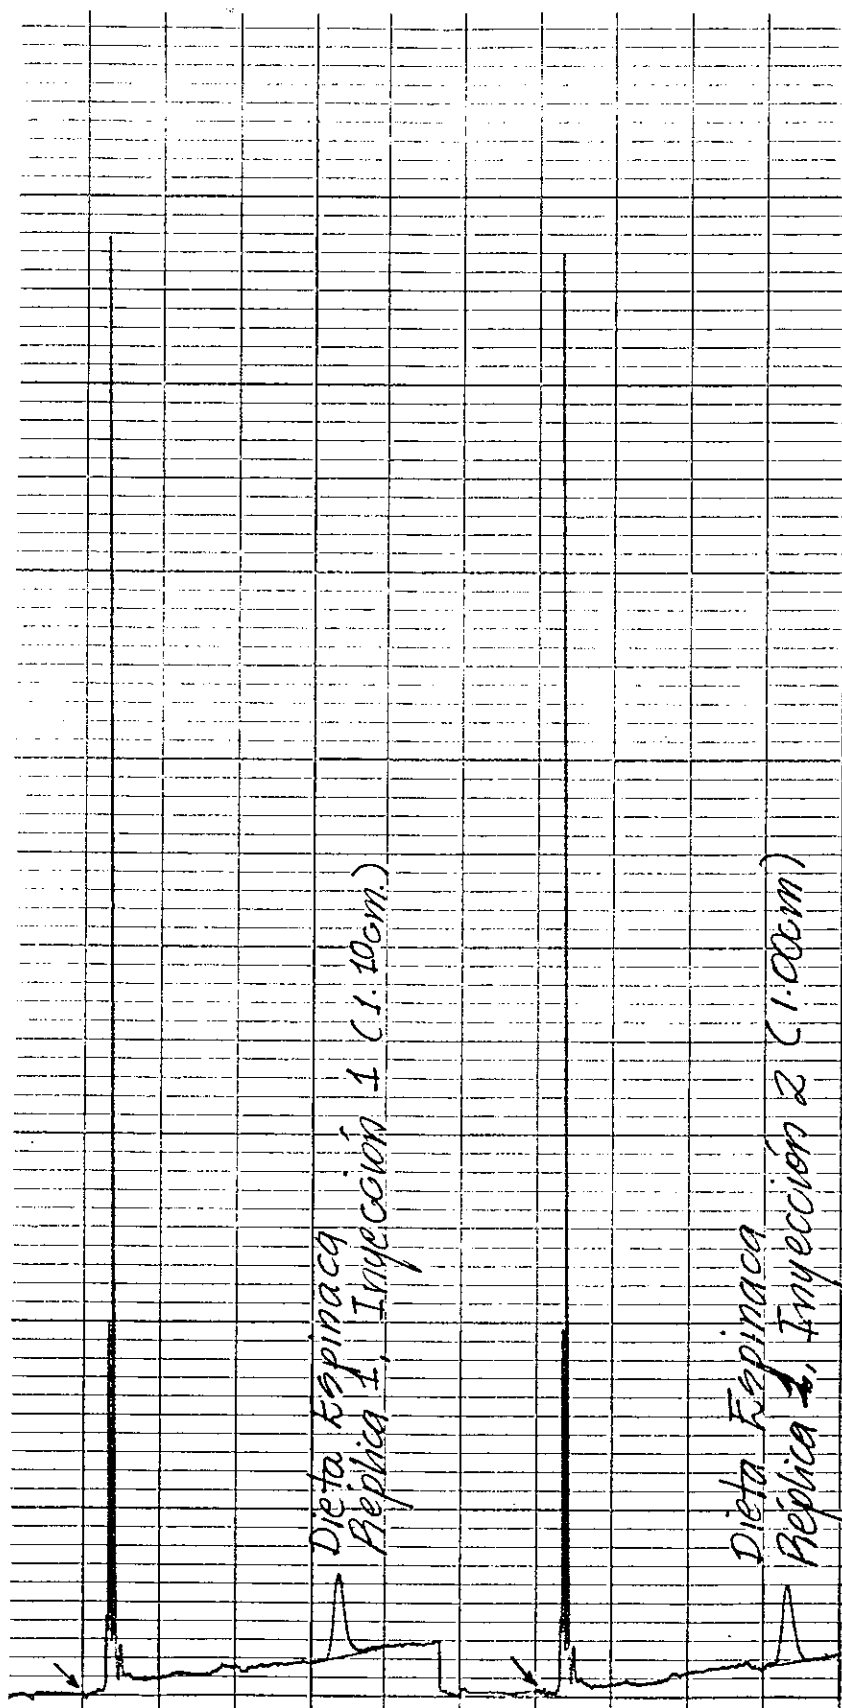 Dieta Espinaca
Réplica 1, Inyección 1 (1.10cm.)
Dieta Espinaca
Réplica 1, Inyección 2 (1.00cm)